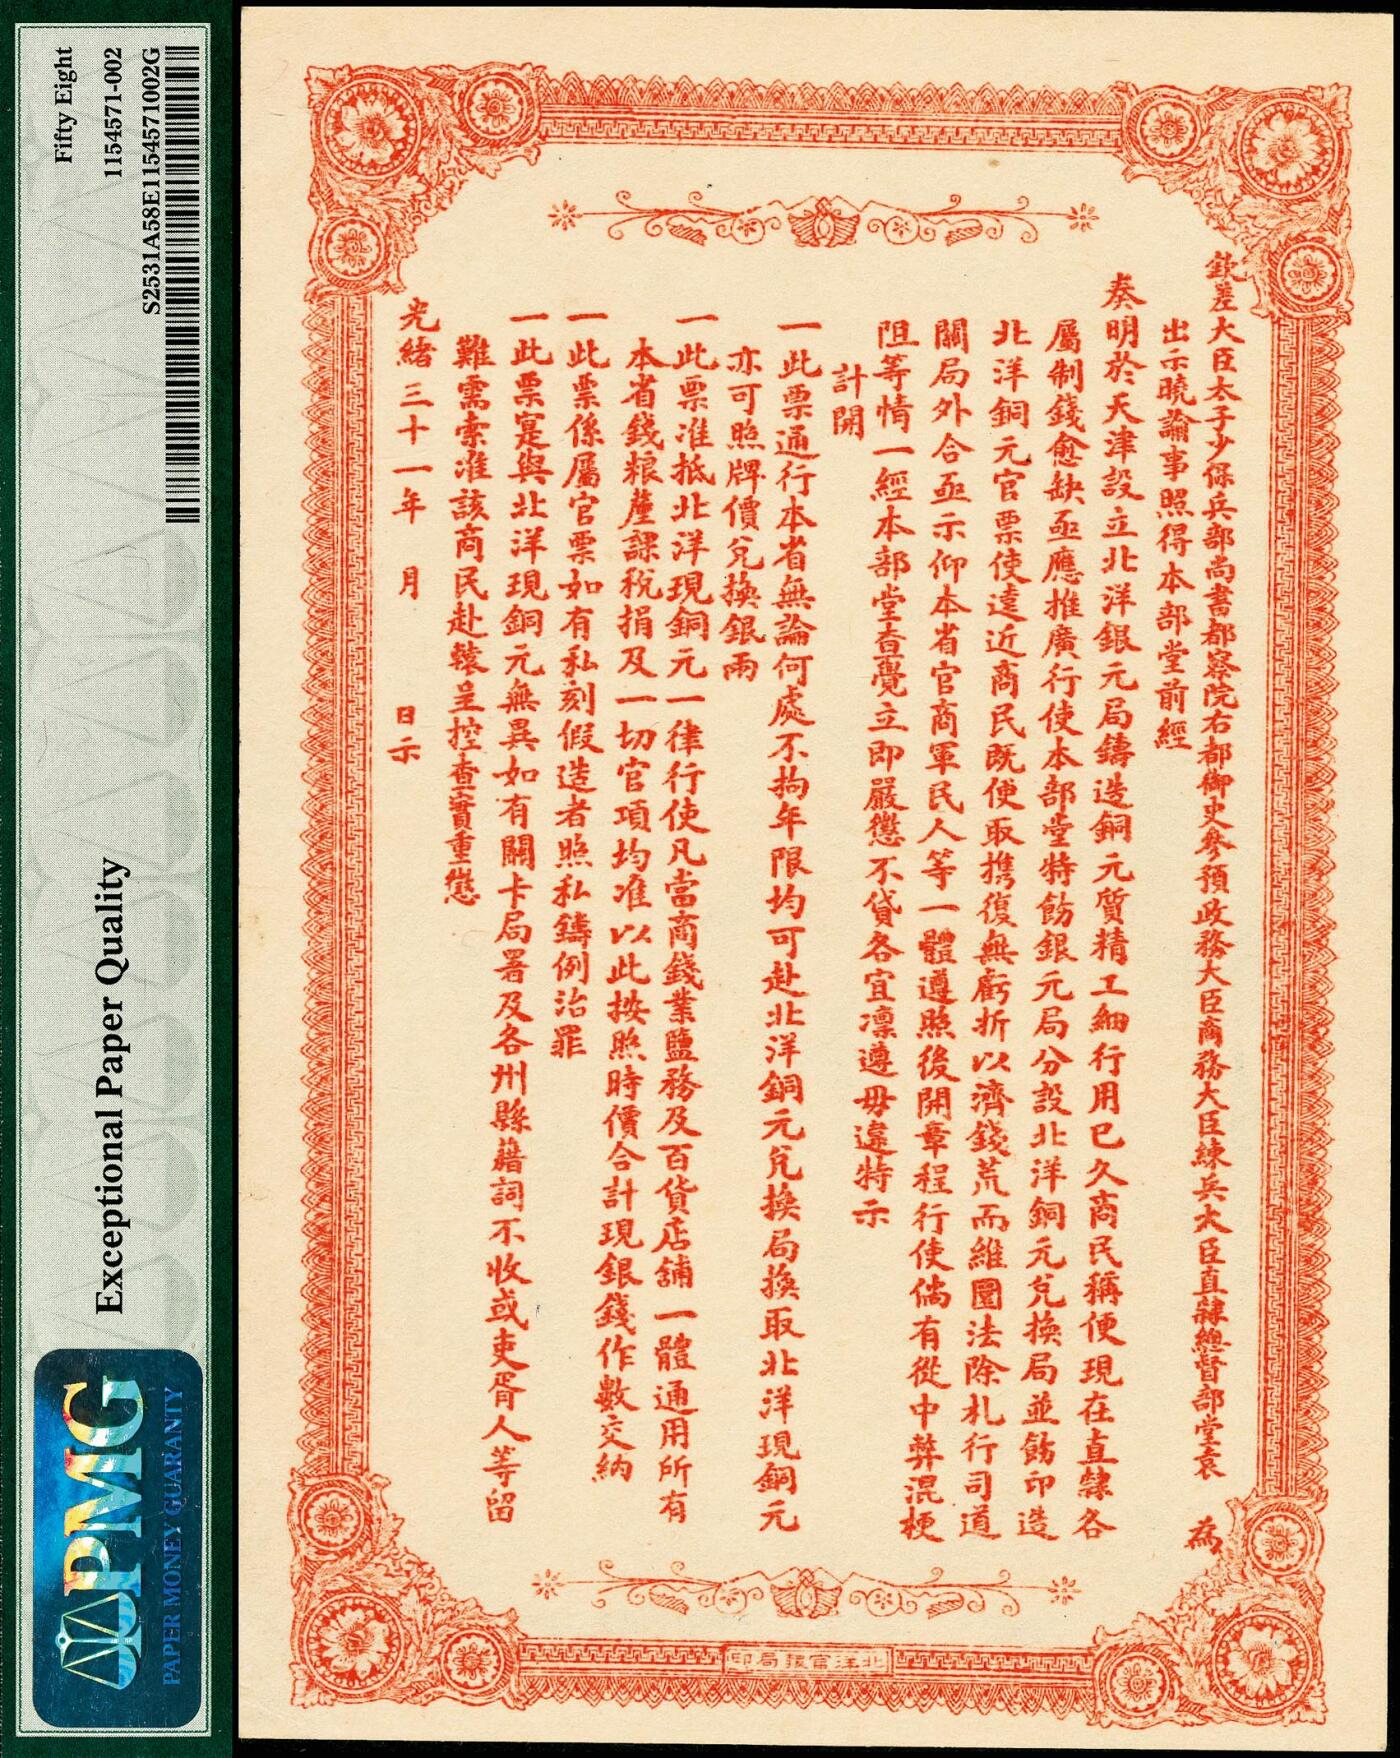 Fifty Eight
1154571-002
S2531A58E1154571002G
Exceptional Paper Quality
PMG
PAPER MONEY GUARANTY
欽差大臣太子少保兵部尚書都察院右都御史參預政務大臣商務大臣練兵大臣直隸總督部堂袁 為
出示曉諭事照得本部堂前經
奏明於天津設立北洋銀元局鑄造銅元質精工細行用已久商民稱便現在直隸各
屬制錢愈缺亟應推廣行使本部堂特飭銀元局分設北洋銅元兌換局並飭印造
北洋銅元官票使遠近商民既便取携復無虧折以濟錢荒而維圜法除札行司道
關局外合亟示仰本省官商軍民人等一體遵照後開章程行使倘有從中弊混梗
阻等情一經本部堂查覺立即嚴懲不貸各宜凜遵毋違特示
計開
一此票通行本省無論何處不拘年限均可赴北洋銅元兌換局換取北洋現銅元
亦可照牌價兌換銀兩
一此票准抵北洋現銅元一律行使凡當商錢業鹽務及百貨店舖一體通用所有
本省錢粮釐課稅捐及一切官項均准以此按照時價合計現銀錢作數交納
一此票係屬官票如有私刻假造者照私鑄例治罪
一此票寔與北洋現銅元無異如有關卡局署及各州縣藉詞不收或吏胥人等留
難需索准該商民赴轅呈控查實重懲
光緒三十一年 月 日示
北洋官報局印